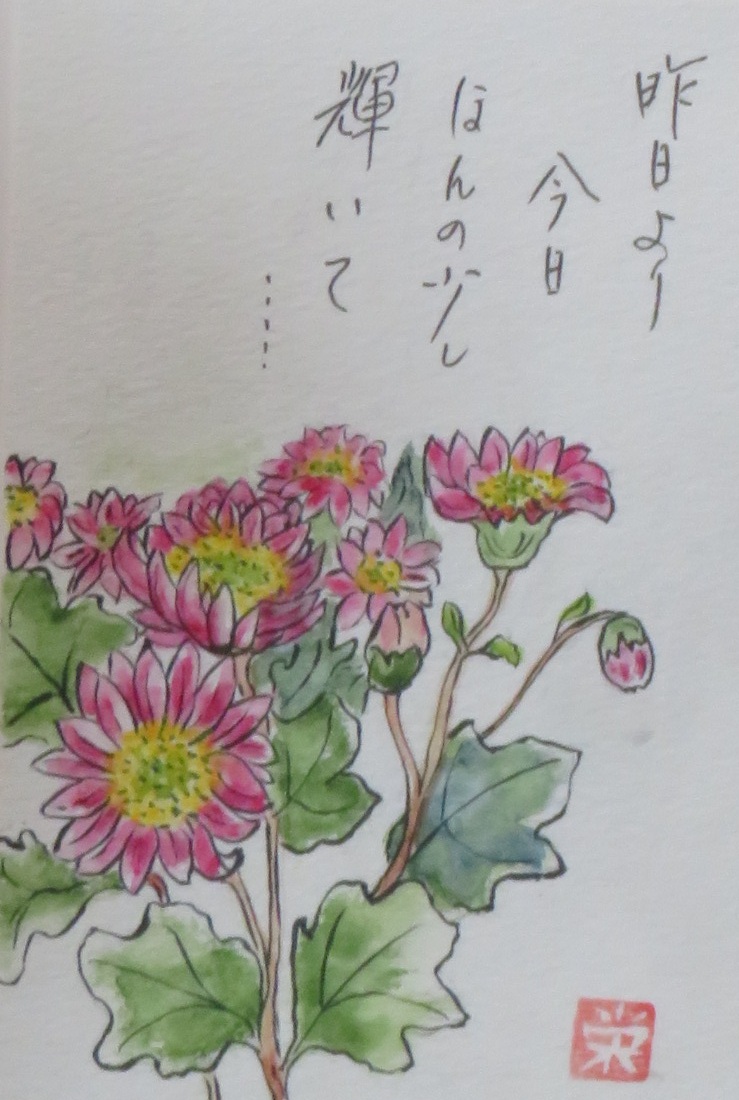 昨日より
今日
ほんの少し
輝いて
……
栄